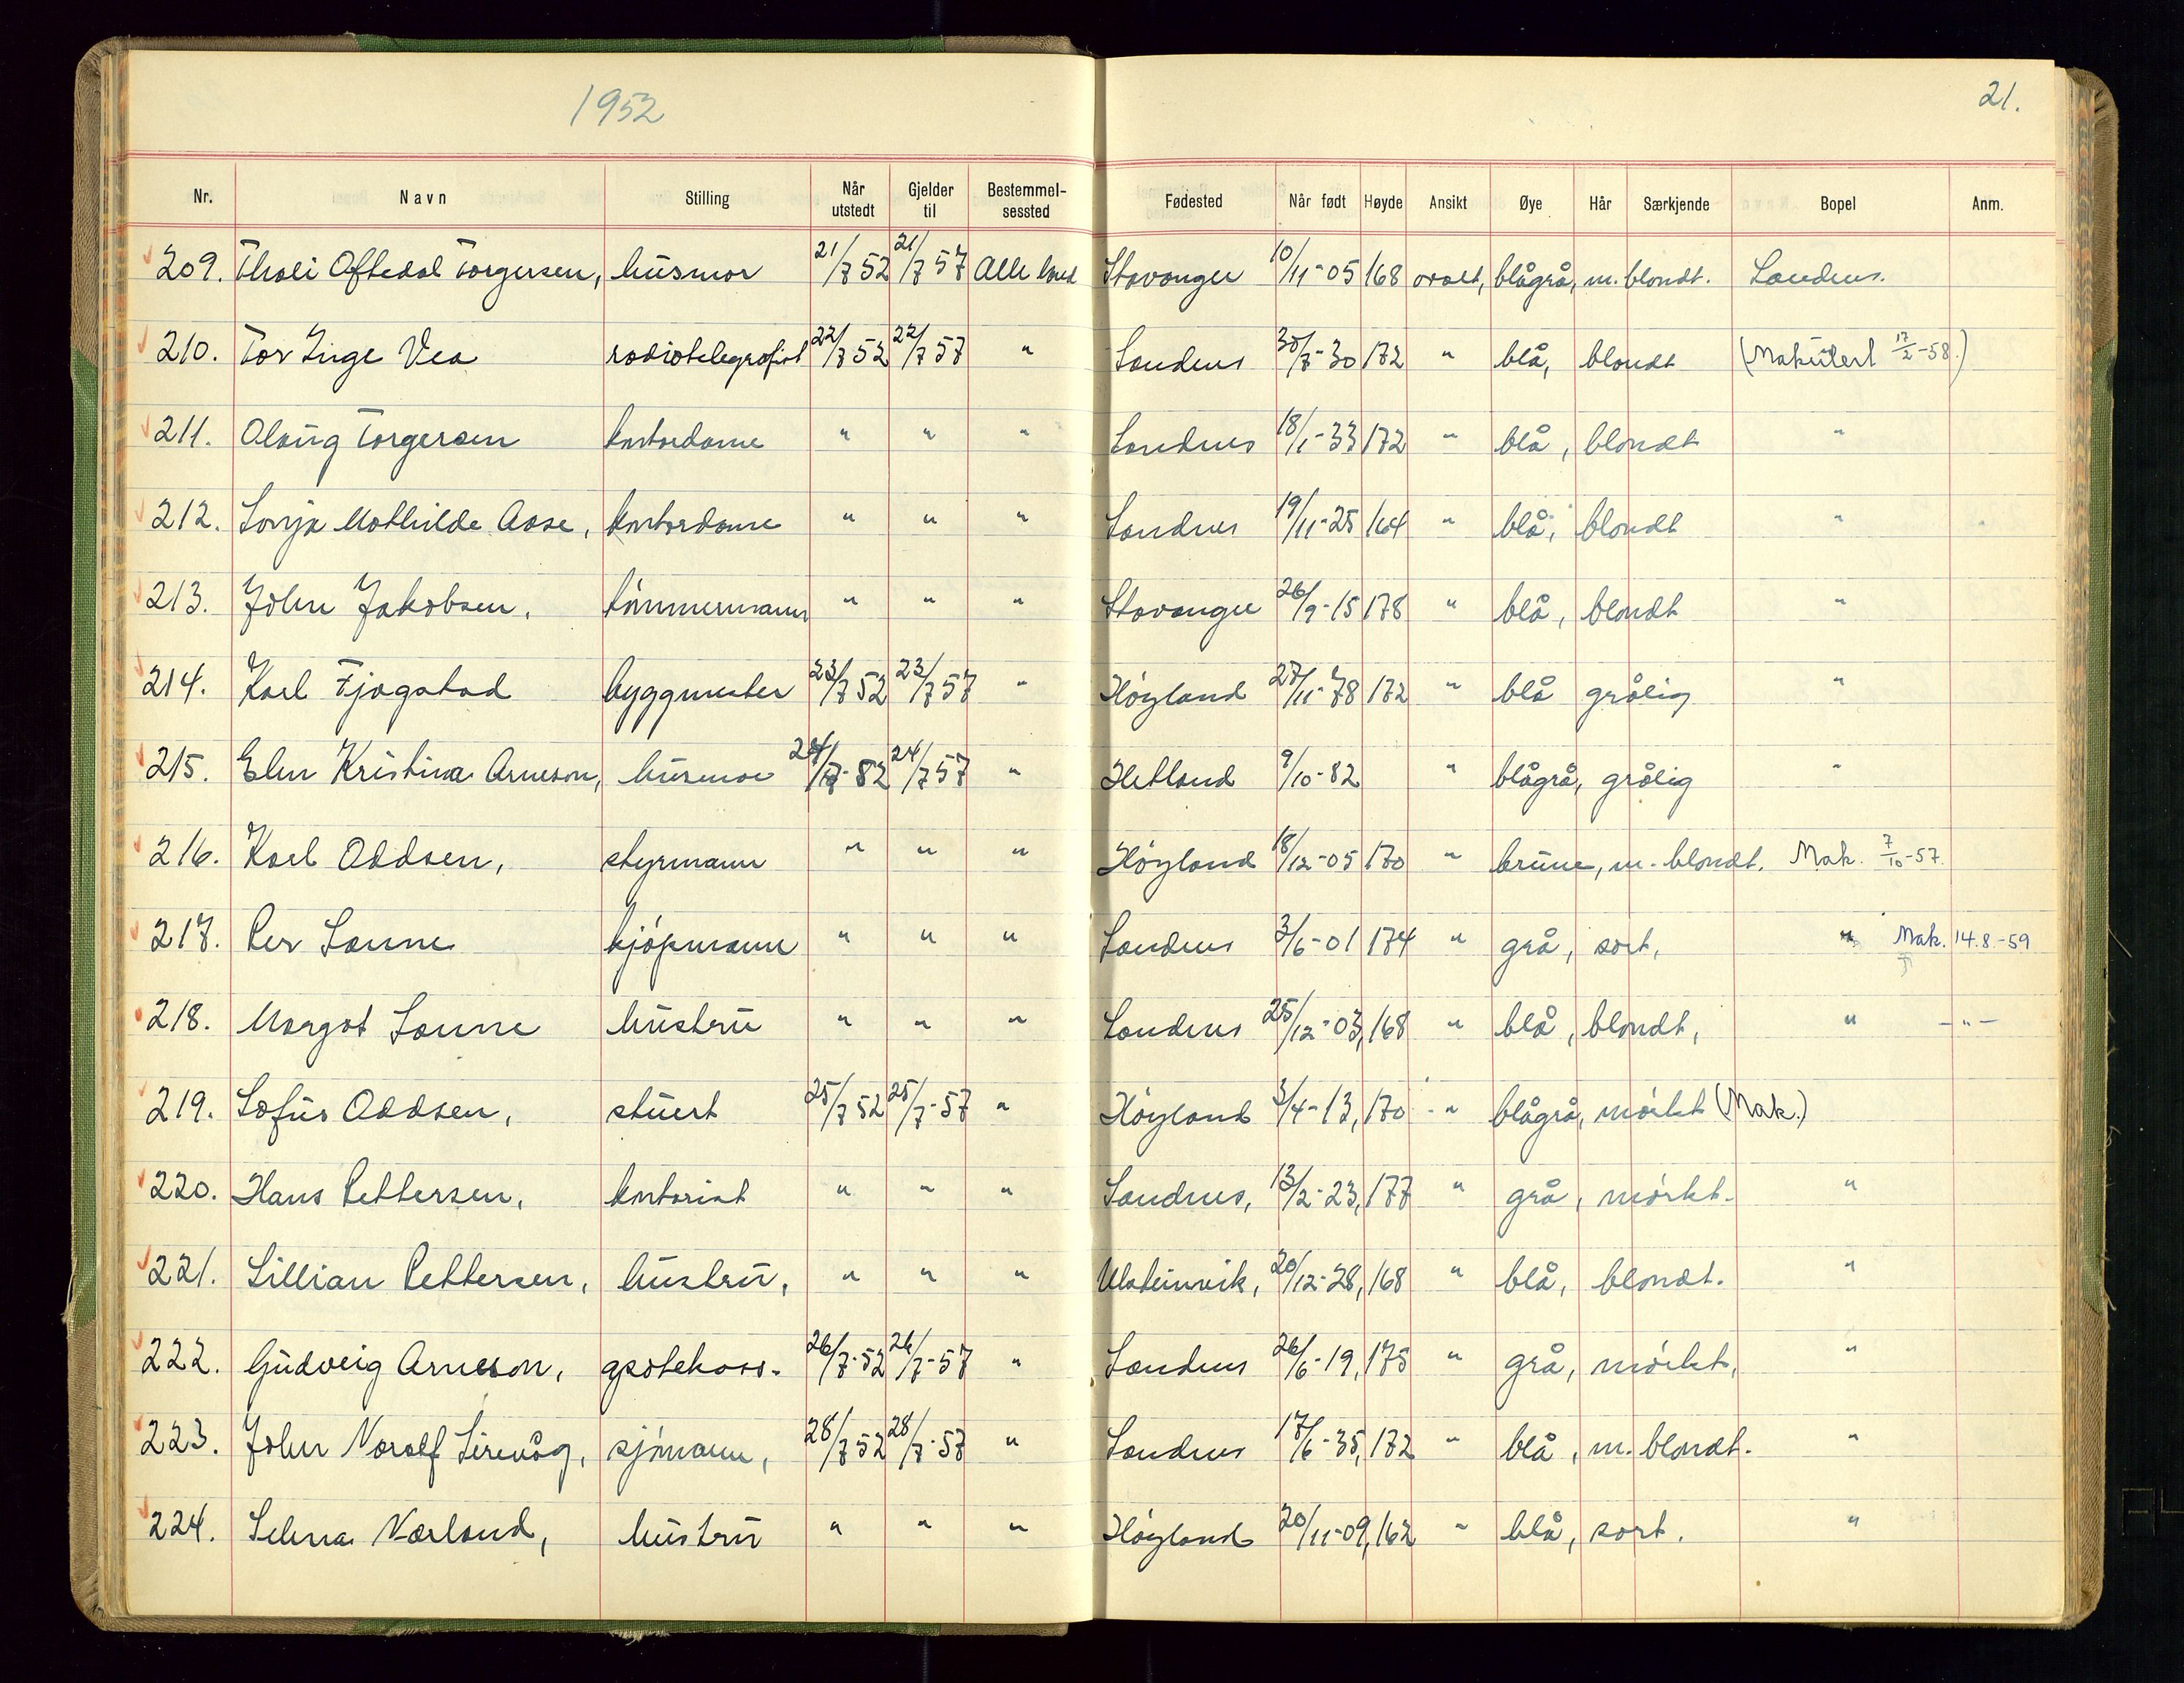 1952
21.
Nr. Navn Stilling Når utstedt Gjelder til Bestemmelsessted Fødested Når født Høyde Ansikt Øye Hår Særkjende Bopel Anm.
209. Thali Oftedal Torgersen, husmor 21/7 52 21/7 57 Alle land Stavanger 10/11-05 168 ovalt, blågrå, m. blondt. Sandnes.
210. Tor Inge Vea radiotelegrafist 22/7 52 22/7 57 " Sandnes 30/7-30 172 " blå, blondt (Makulert 17/2-58.)
211. Olaug Torgersen kontordame " " " Sandnes 18/1-33 172 " blå, blondt "
212. Sonja Mathilde Aase, kontordame " " " Sandnes 19/11-25 164 " blå, blondt "
213. John Jakobsen, tömmermann " " " Stavanger 26/9-15 178 " blå, blondt "
214. Karl Fjogstad byggmester 23/7 52 23/7 57 " Höyland 27/11-78 172 " blå grålig "
215. Elen Kristina Arneson, husmor 24/7-82 24/7 57 " Hetland 9/10-82 " blågrå, grålig "
216. Karl Oddsen, styrmann " " " Höyland 18/12-05 170 " brune, m. blondt. Mak. 7/10-57.
217. Per Sønne kjöpmann " " " Sandnes 3/6-01 174 " grå, sort, " Mak. 14.8.-59
218. Margot Sønne hustru " " " Sandnes 25/12-03, 168 " blå, blondt, " -"-
219. Sofus Oddsen, stuert 25/7 52 25/7-57 " Höyland 3/4-13, 170 " blågrå, mörkt (Mak.)
220. Hans Pettersen, kontorist " " " Sandnes, 13/2-23, 177 " grå, mörkt. "
221. Lillian Pettersen, hustru, " " " Ulsteinvik, 20/12-28, 168 " blå, blondt. "
222. Gudveig Arneson, apotekass. 26/7-52 26/7-57 " Sandnes 26/6-19, 175 " grå, mörkt, "
223. John Noralf Sirevåg, sjömann, 28/7 52 28/7-57 " Sandnes 17/6-35, 172 " blå, m. blondt. "
224. Selma Nærland, hustru " " " Höyland 20/11-09, 162 " blå, sort. "